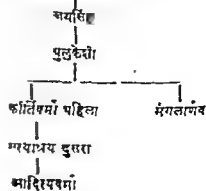 जयसिंह
पुलुकेशी
कीर्तिवर्मा पहिला मंगलार्णव
सत्याश्रय दुसरा
आदित्यवर्मा